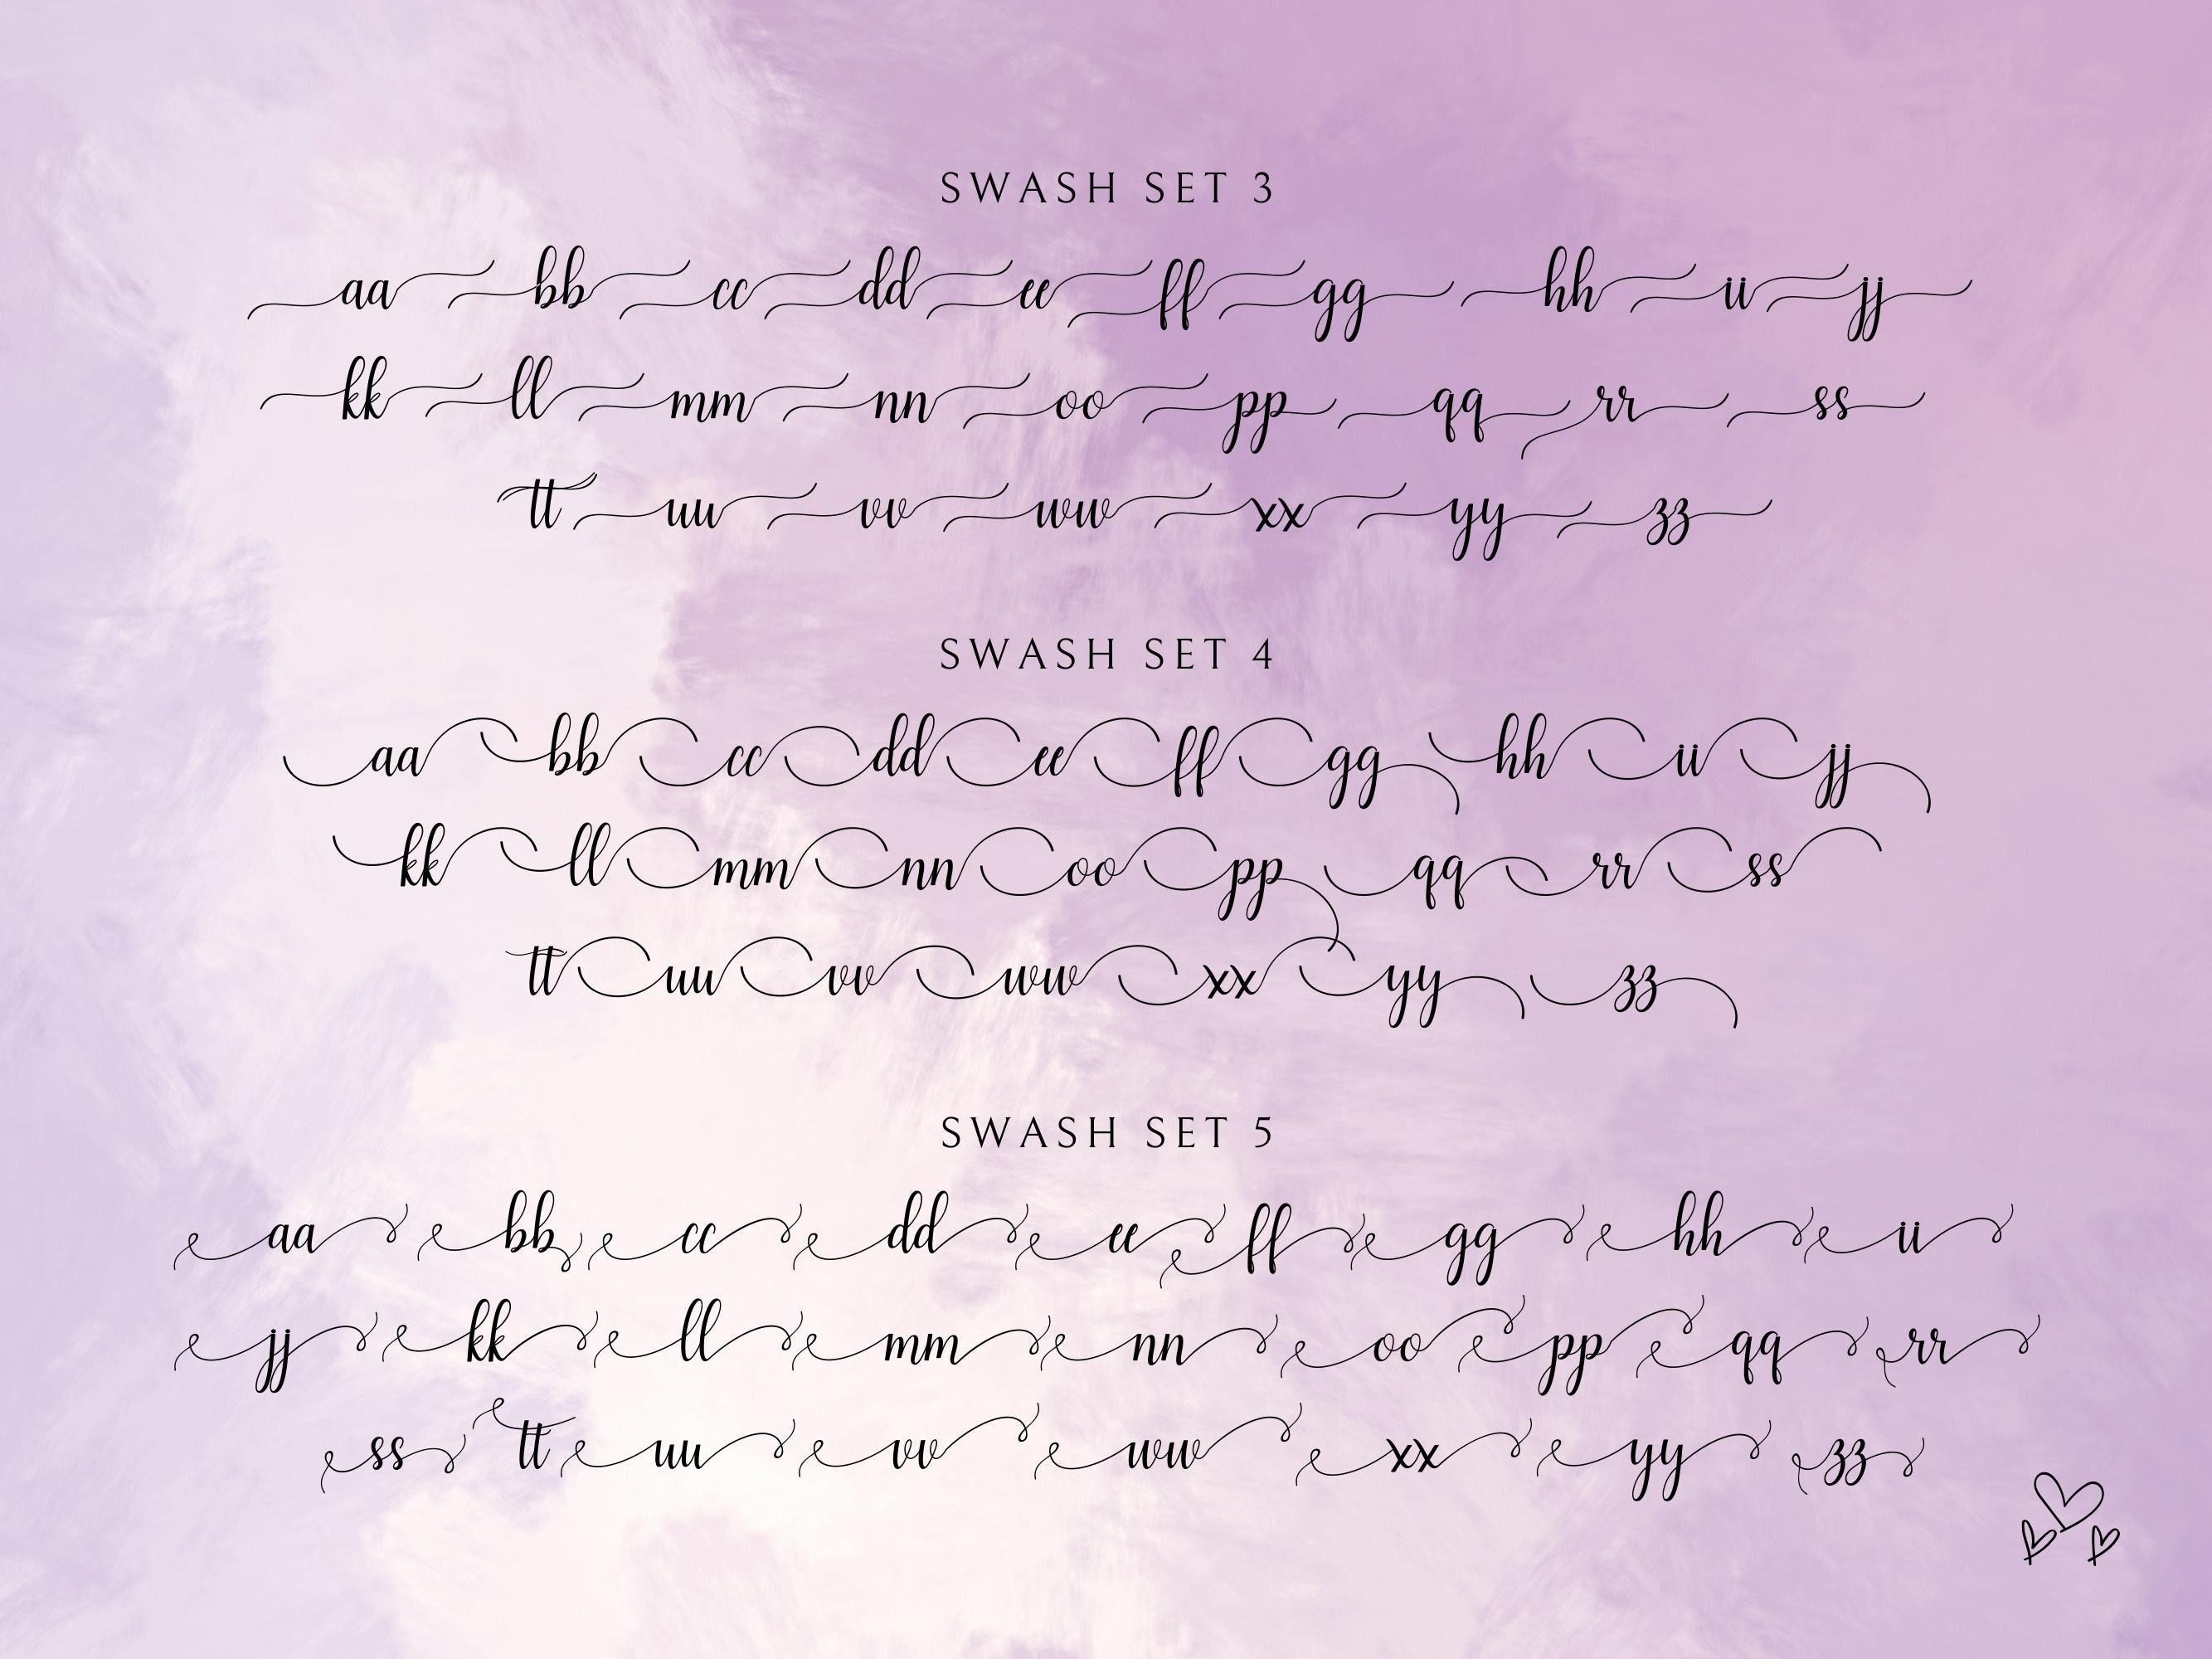 SWASH SET 3
aa bb cc dd ee ff gg hh ii jj
kk ll mm nn oo pp qq rr ss
tt uu vv ww xx yy zz
SWASH SET 4
aa bb cc dd ee ff gg hh ii jj
kk ll mm nn oo pp qq rr ss
tt uu vv ww xx yy zz
SWASH SET 5
aa bb cc dd ee ff gg hh ii
jj kk ll mm nn oo pp qq rr
ss tt uu vv ww xx yy zz